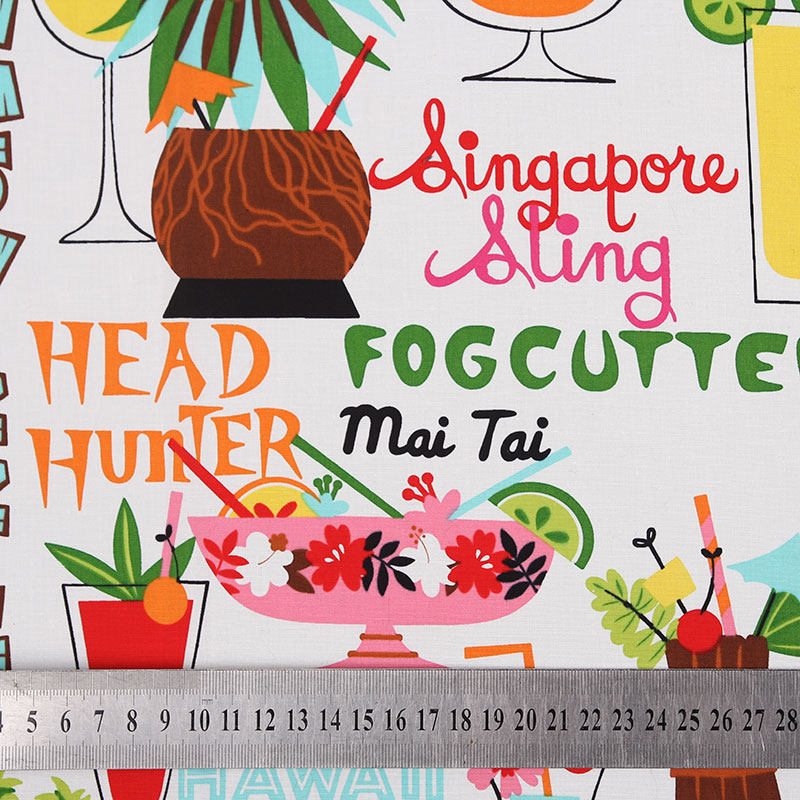 Singapore
Sling
HEAD
HUnTER
FOGCUTTE
Mai Tai
5 6 7 8 9 10 11 12 13 14 15 16 17 18 19 20 21 22 23 24 25 26 27 28
HAWAII